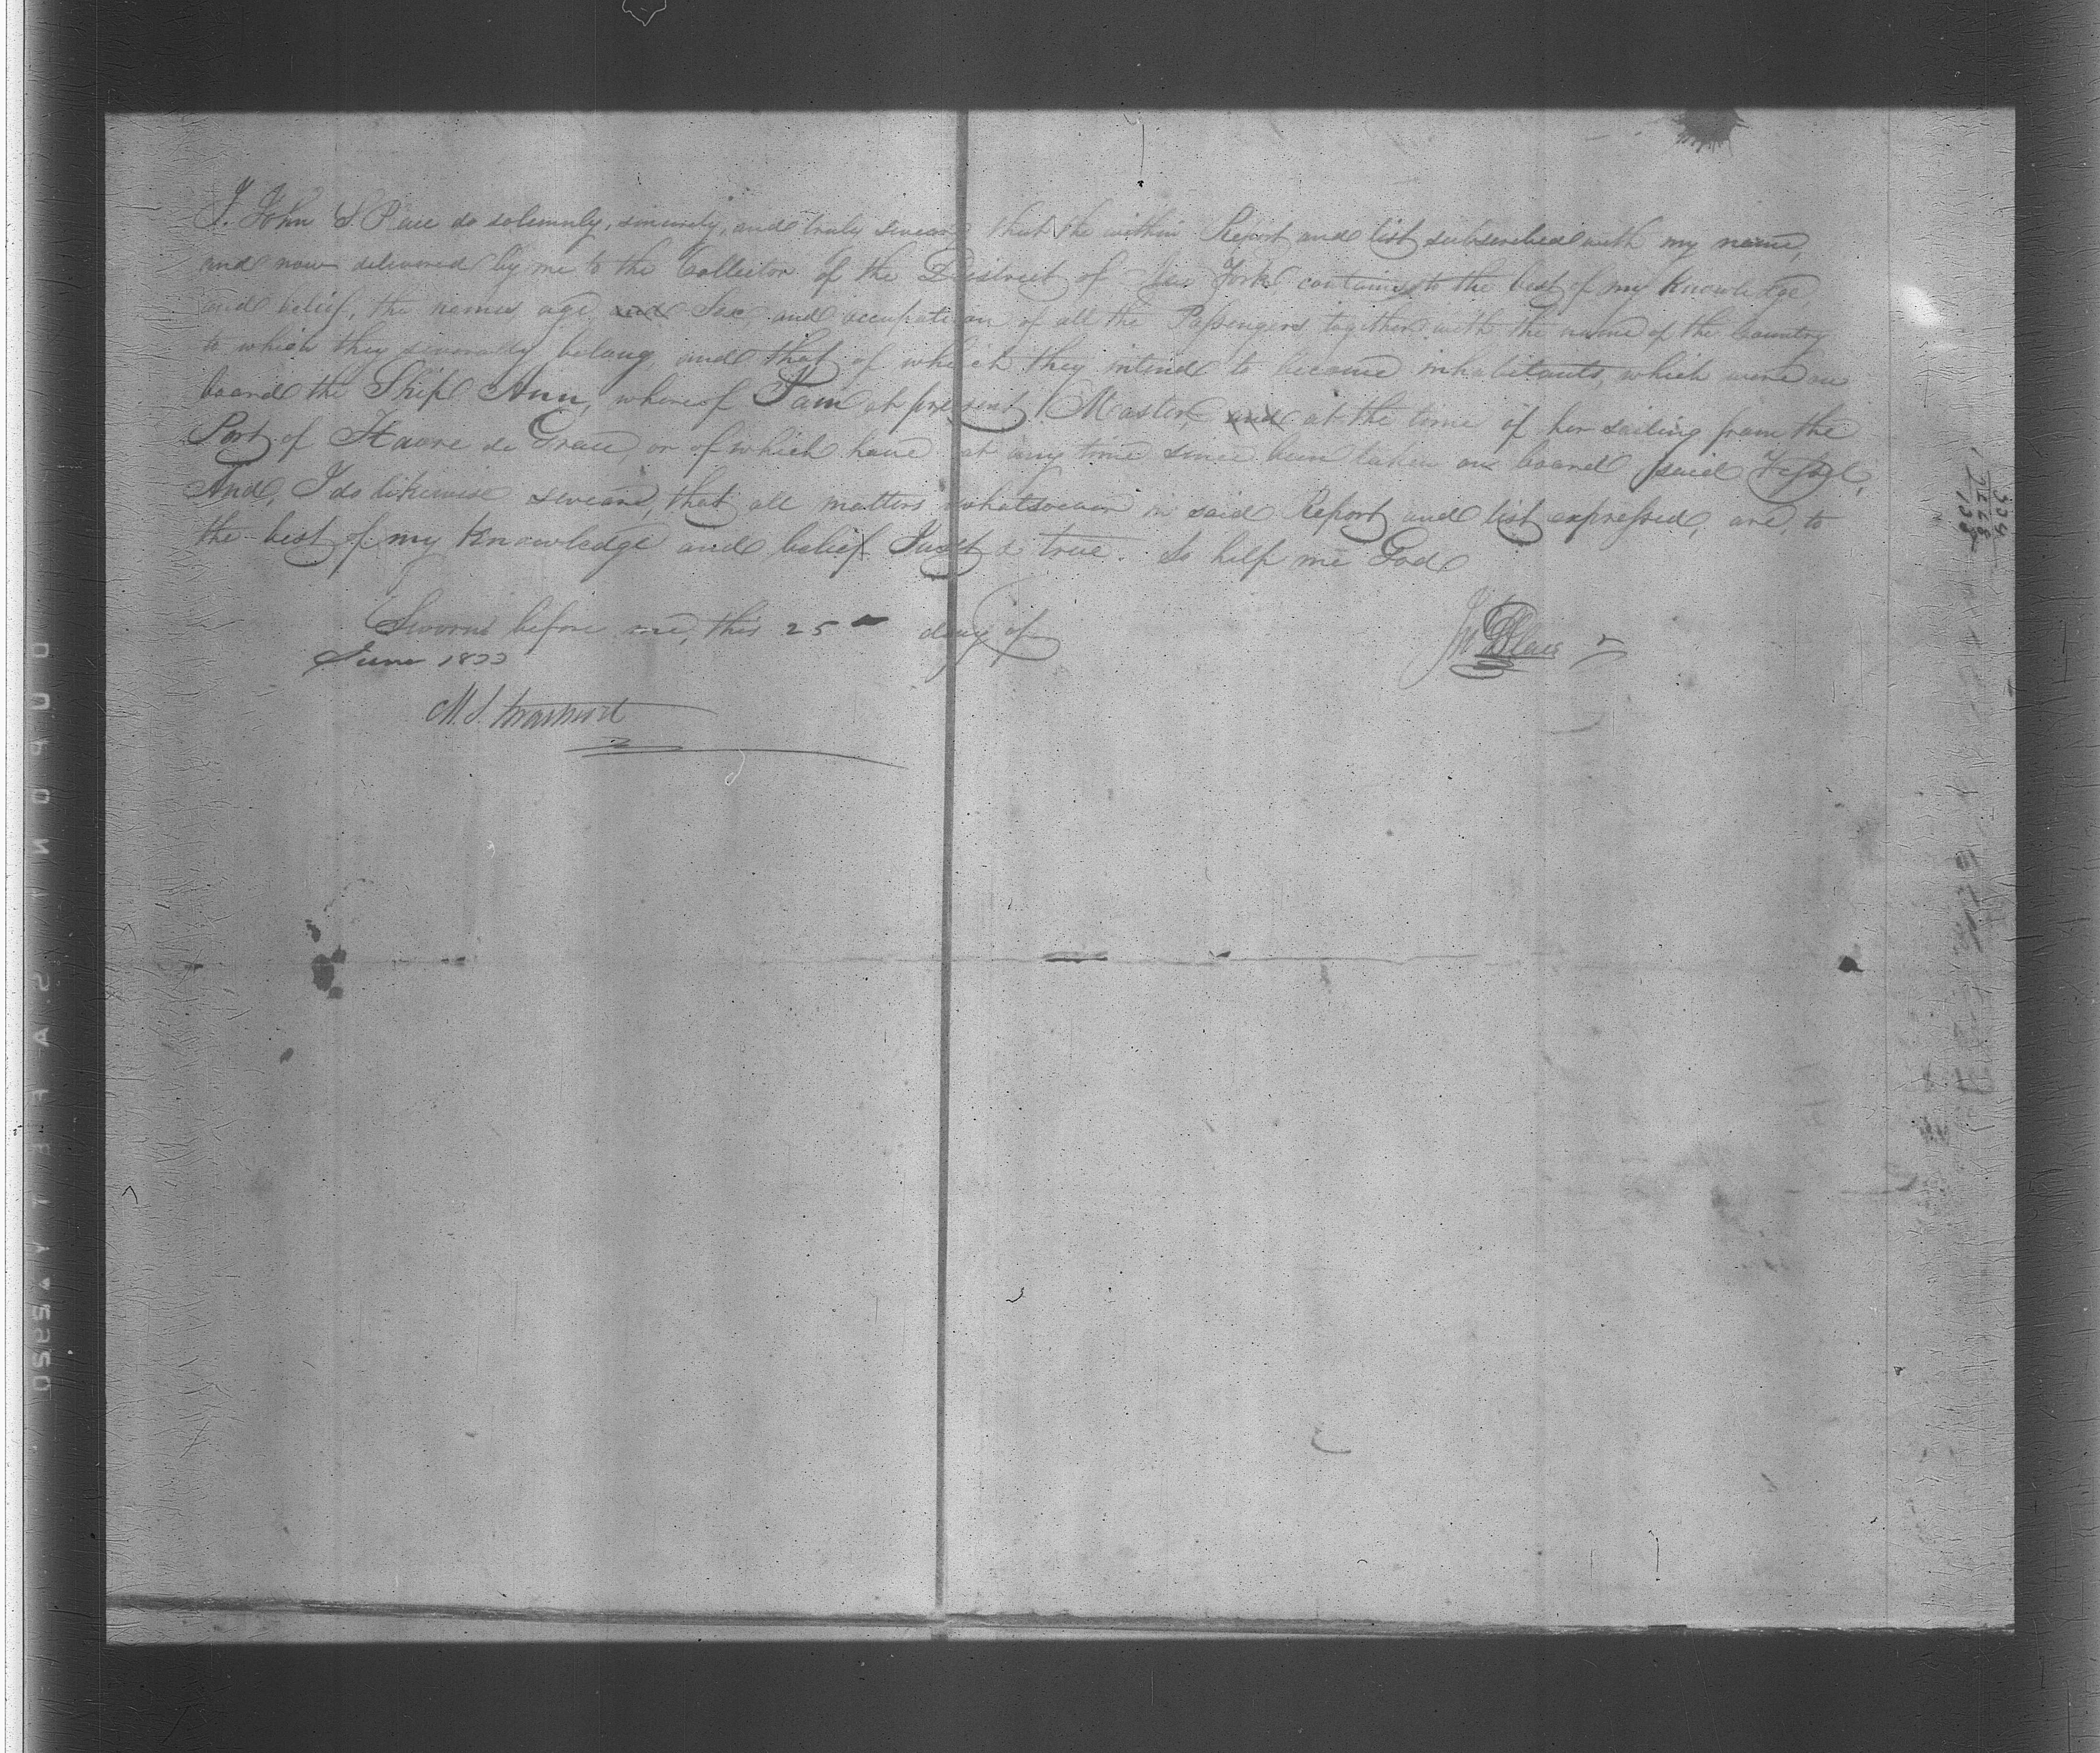 I. John S Place do solemnly, sincerely, and truly swear that the within Report and list subscribed with my name,
and now delivered by me to the Collector of the District of New York contains, to the best of my knowledge,
and belief, the names age, and Sex, and occupation of all the Passengers, together with the name of the Country
to which they severally belong, and that of which they intend to become inhabitants, which were on
board the Ship Ann, whereof I am at present Master, and at the time of her sailing from the
Port of Havre de Grace, or of which have at any time since been taken on board said Vessel,
And, I do likewise swear, that all matters whatsoever in said Report and list expressed, are, to
the best of my Knowledge and belief Just & true. So help me God
Sworn before me, this 25 day of
June 1833
Jn Place
M. S.
SAFETY